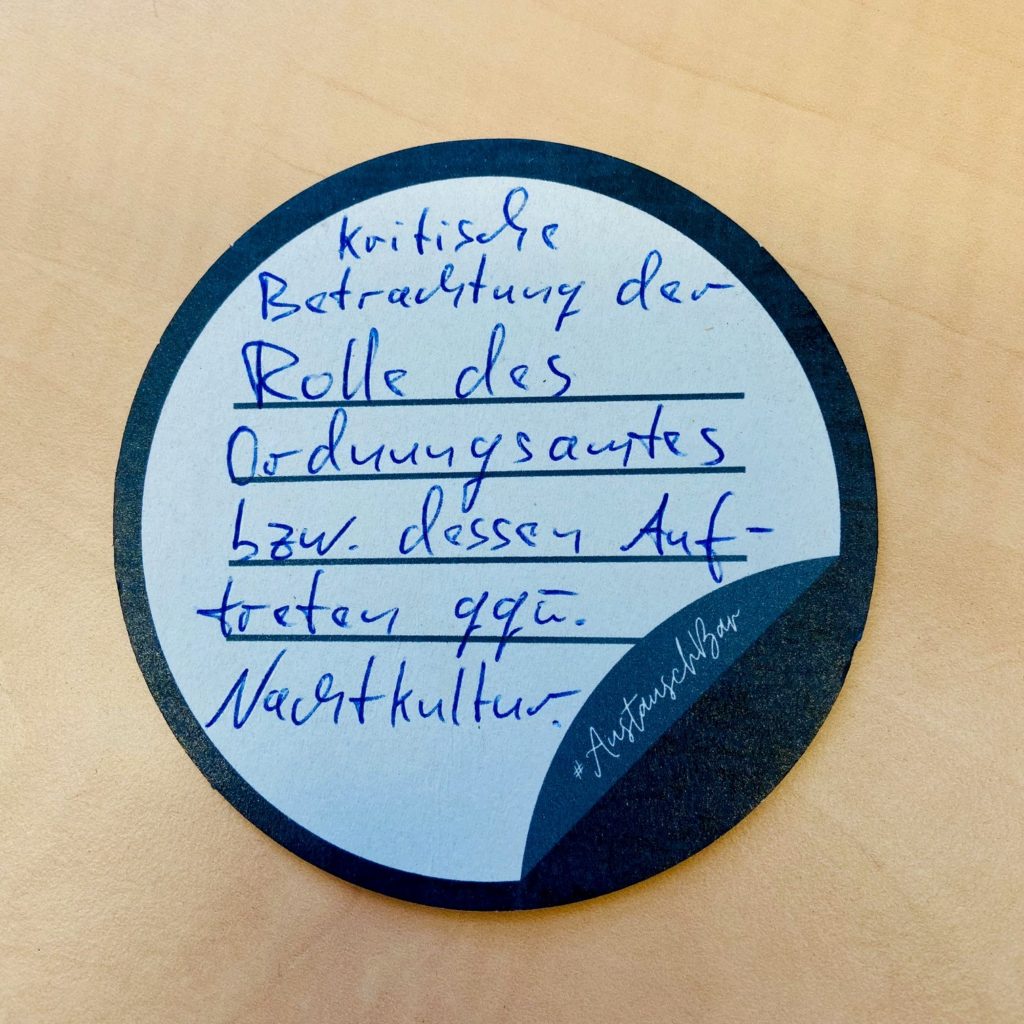 kritische
Betrachtung der
Rolle des
Ordnungsamtes
bzw. dessen Auf-
treten ggü.
Nachtkultur.
#AustauschBar